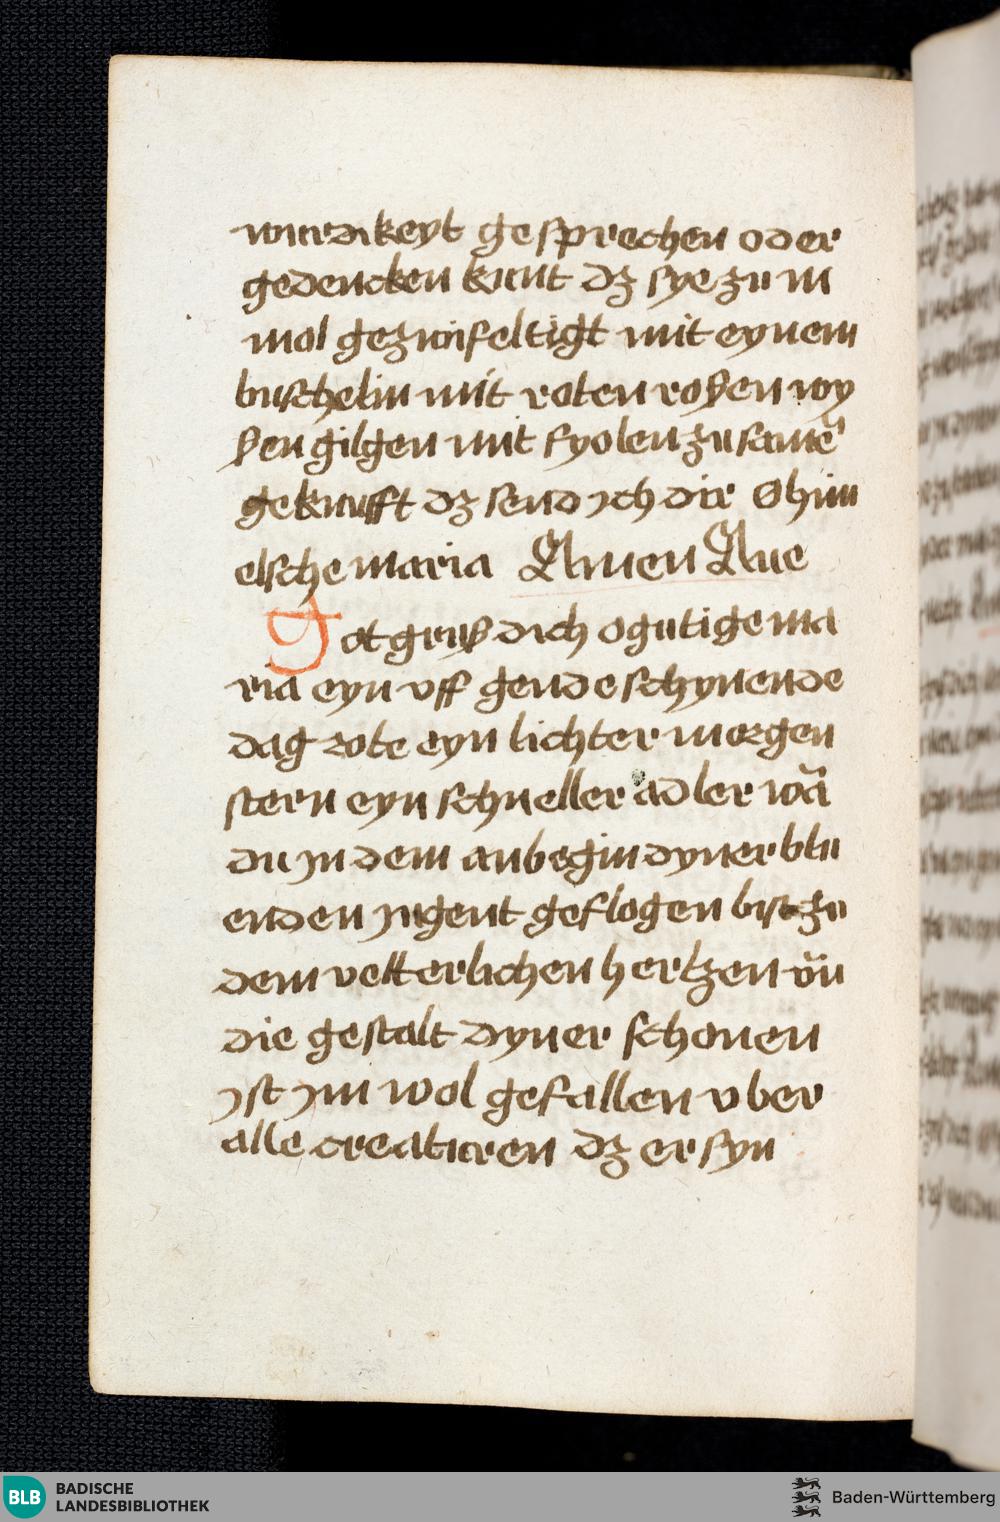 wurdikeyt gesprechen oder
gedencken kunt dz sye zu m
mol gezwifeltigt mit eynem
buschelin mit roten roßen wy
ßen gilgen mit fyolen zu samē
geknufft dz send ich dir O him
elsche maria Amen Aue
Got gruß dich o gutige ma
ria eyn vff gende schynende
dag rote eyn lichter morgen
stern eyn schneller adler wā
du jn dem anbegin dyner blu
enden jugent geflogen bist zu
dem vetterlichen hertzen vn̄
die gestalt dyner schonen
jst jm wol gefallen vber
alle creaturen dz er syn
BLB
BADISCHE
LANDESBIBLIOTHEK
Baden-Württemberg